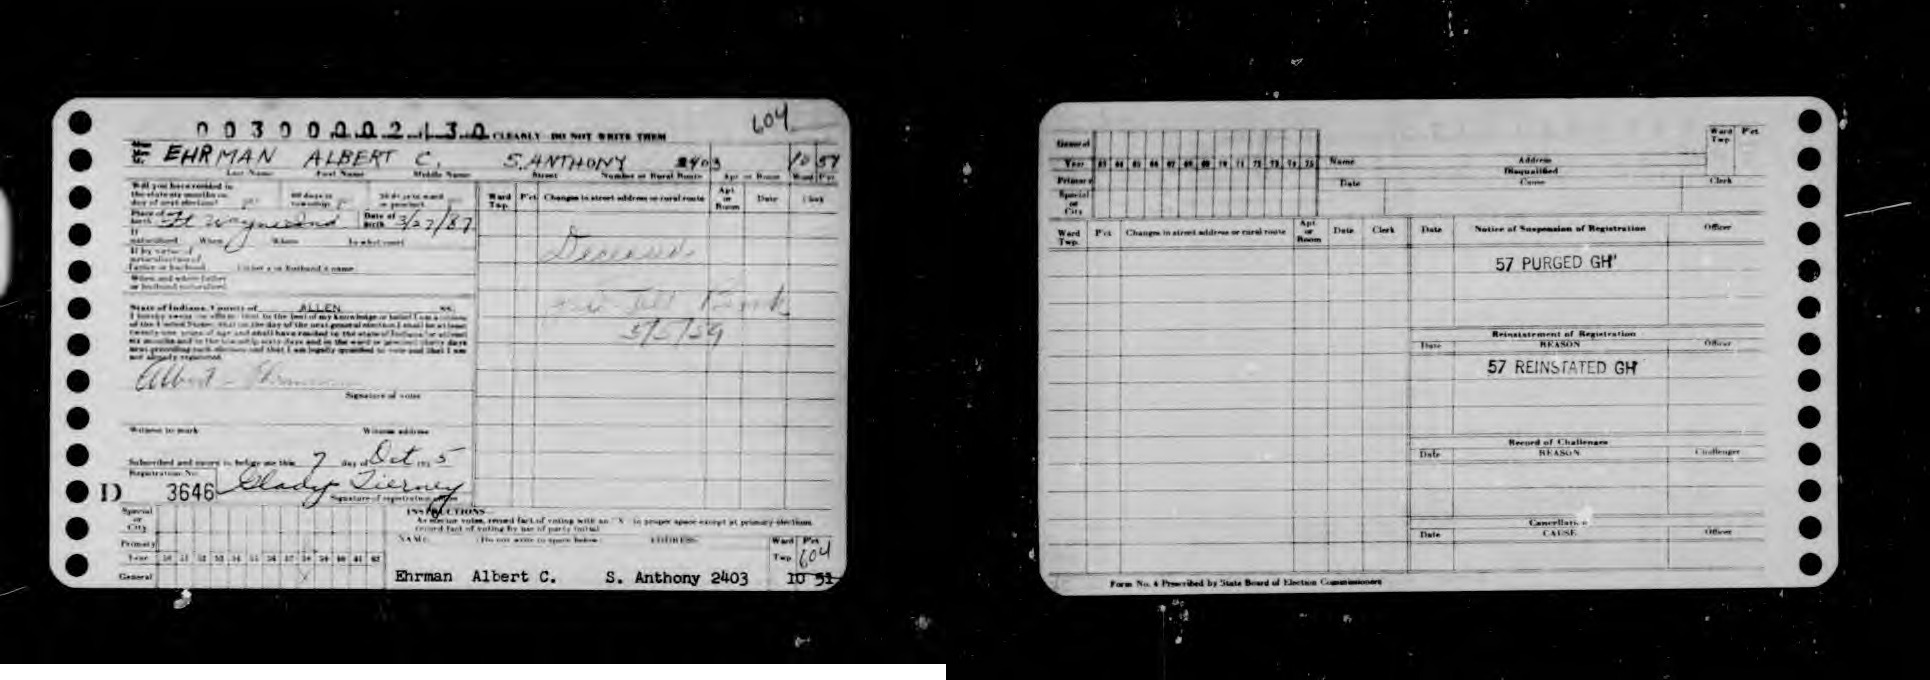 604
0 0 3 0 0 0 0 0 2 1 3 0 CLEARLY DO NOT WRITE THEM
EHRMAN ALBERT C. S. ANTHONY 2403 10 51
Last Name First Name Middle Name Street Number or Rural Route Apt or Room Ward Pct
Will you have resided in
the state six months on
day of next election?
60 days in
township
30 days in ward
or precinct
Ward
Twp.
P'ct
Changes in street address or rural route
Apt
or
Room
Date
Clerk
Place of
birth
Ft Wayne Ind
Date of
birth
3/27/87
If
naturalized When Where In what court
If by virtue of
naturalization of
father or husband Father's or husband's name
When and where father
or husband naturalized
Deceased
5/5/59
State of Indiana, County of ALLEN SS.
I hereby swear or affirm that to the best of my knowledge or belief I am a citizen
of the United States; that on the day of the next general election I shall be at least
twenty-one years of age and shall have resided in the state of Indiana for at least
six months and in the township sixty days and in the ward or precinct thirty days
next preceding such election and that I am legally qualified to vote and that I am
not already registered.
Albert Ehrman
Signature of voter
Witness to mark Witness address
Subscribed and sworn to before me this 7 day of Oct 5
Registration No.
D 3646 Glady Tierney
Signature of registration officer
INSTRUCTIONS
As elector votes, record fact of voting with an "X" in proper space except at primary elections
record fact of voting by use of party initial
Special
or
City
Primary
Year 50 51 52 53 54 55 56 57 58 59 60 61 62
General X
NAME (Do not write in space below) ADDRESS
Ward P'ct
Twp. 604
Ehrman Albert C. S. Anthony 2403 10 51
General
Year 63 64 65 66 67 68 69 70 71 72 73 74 75
Primary
Special
or
City
Name Address
Ward P'ct
Twp
Disqualified
Date Cause Clerk
Ward
Twp.
P'ct
Changes in street address or rural route
Apt
or
Room
Date
Clerk
Date Notice of Suspension of Registration Officer
57 PURGED GH
Reinstatement of Registration
Date REASON Officer
57 REINSTATED GH
Record of Challenges
Date REASON Challenger
Cancellation
Date CAUSE Officer
Form No. 4 Prescribed by State Board of Election Commissioners